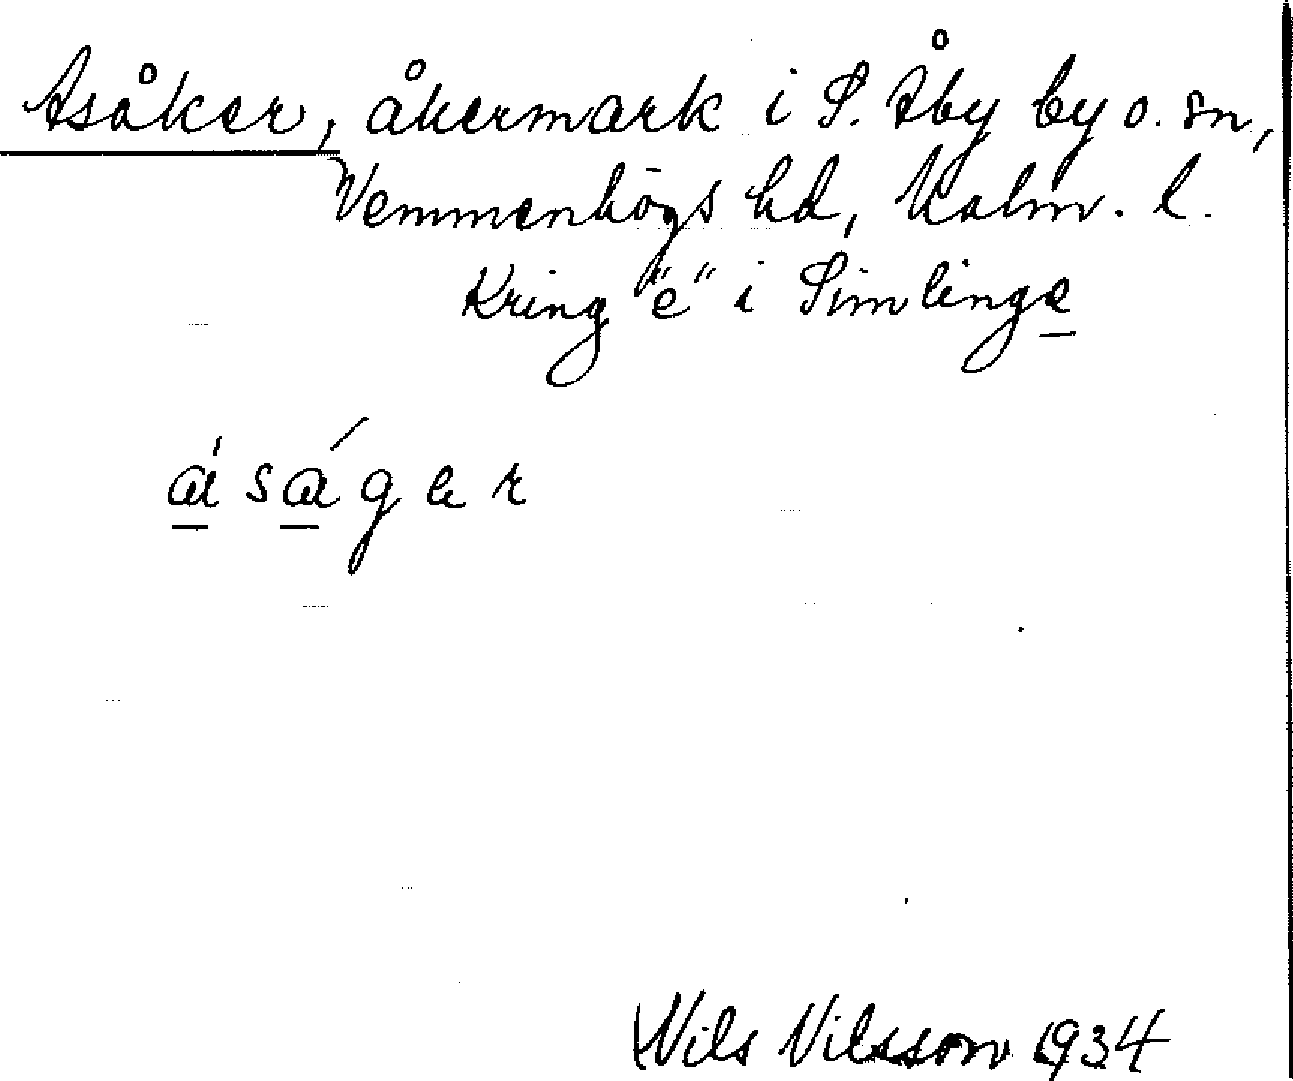 Asåker, åkermark i S. Åby by o. sn,
Vemmenhögs hd, Malm. l.
Kring "e" i Simlinge
áságer
Nils Nilsson 1934